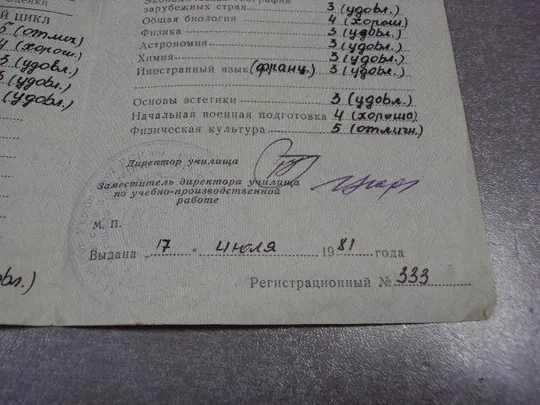 оценки
й цикл
5 (отличн.)
4 (хорош.)
3 (удовл.)
3 (удовл.)
(удовл.)
овл.)
Экономическая география
зарубежных стран 3 (удовл.)
Общая биология 4 (хорош.)
Физика 3 (удовл.)
Астрономия 3 (удовл.)
Химия 3 (удовл.)
Иностранный язык (франц.) 3 (удовл.)
Основы эстетики 3 (удовл.)
Начальная военная подготовка 4 (хорошо)
Физическая культура 5 (отличн)
Директор училища
Заместитель директора училища
по учебно-производственной
работе
М. П.
Выдана „17" июля 1981 года
Регистрационный № 333